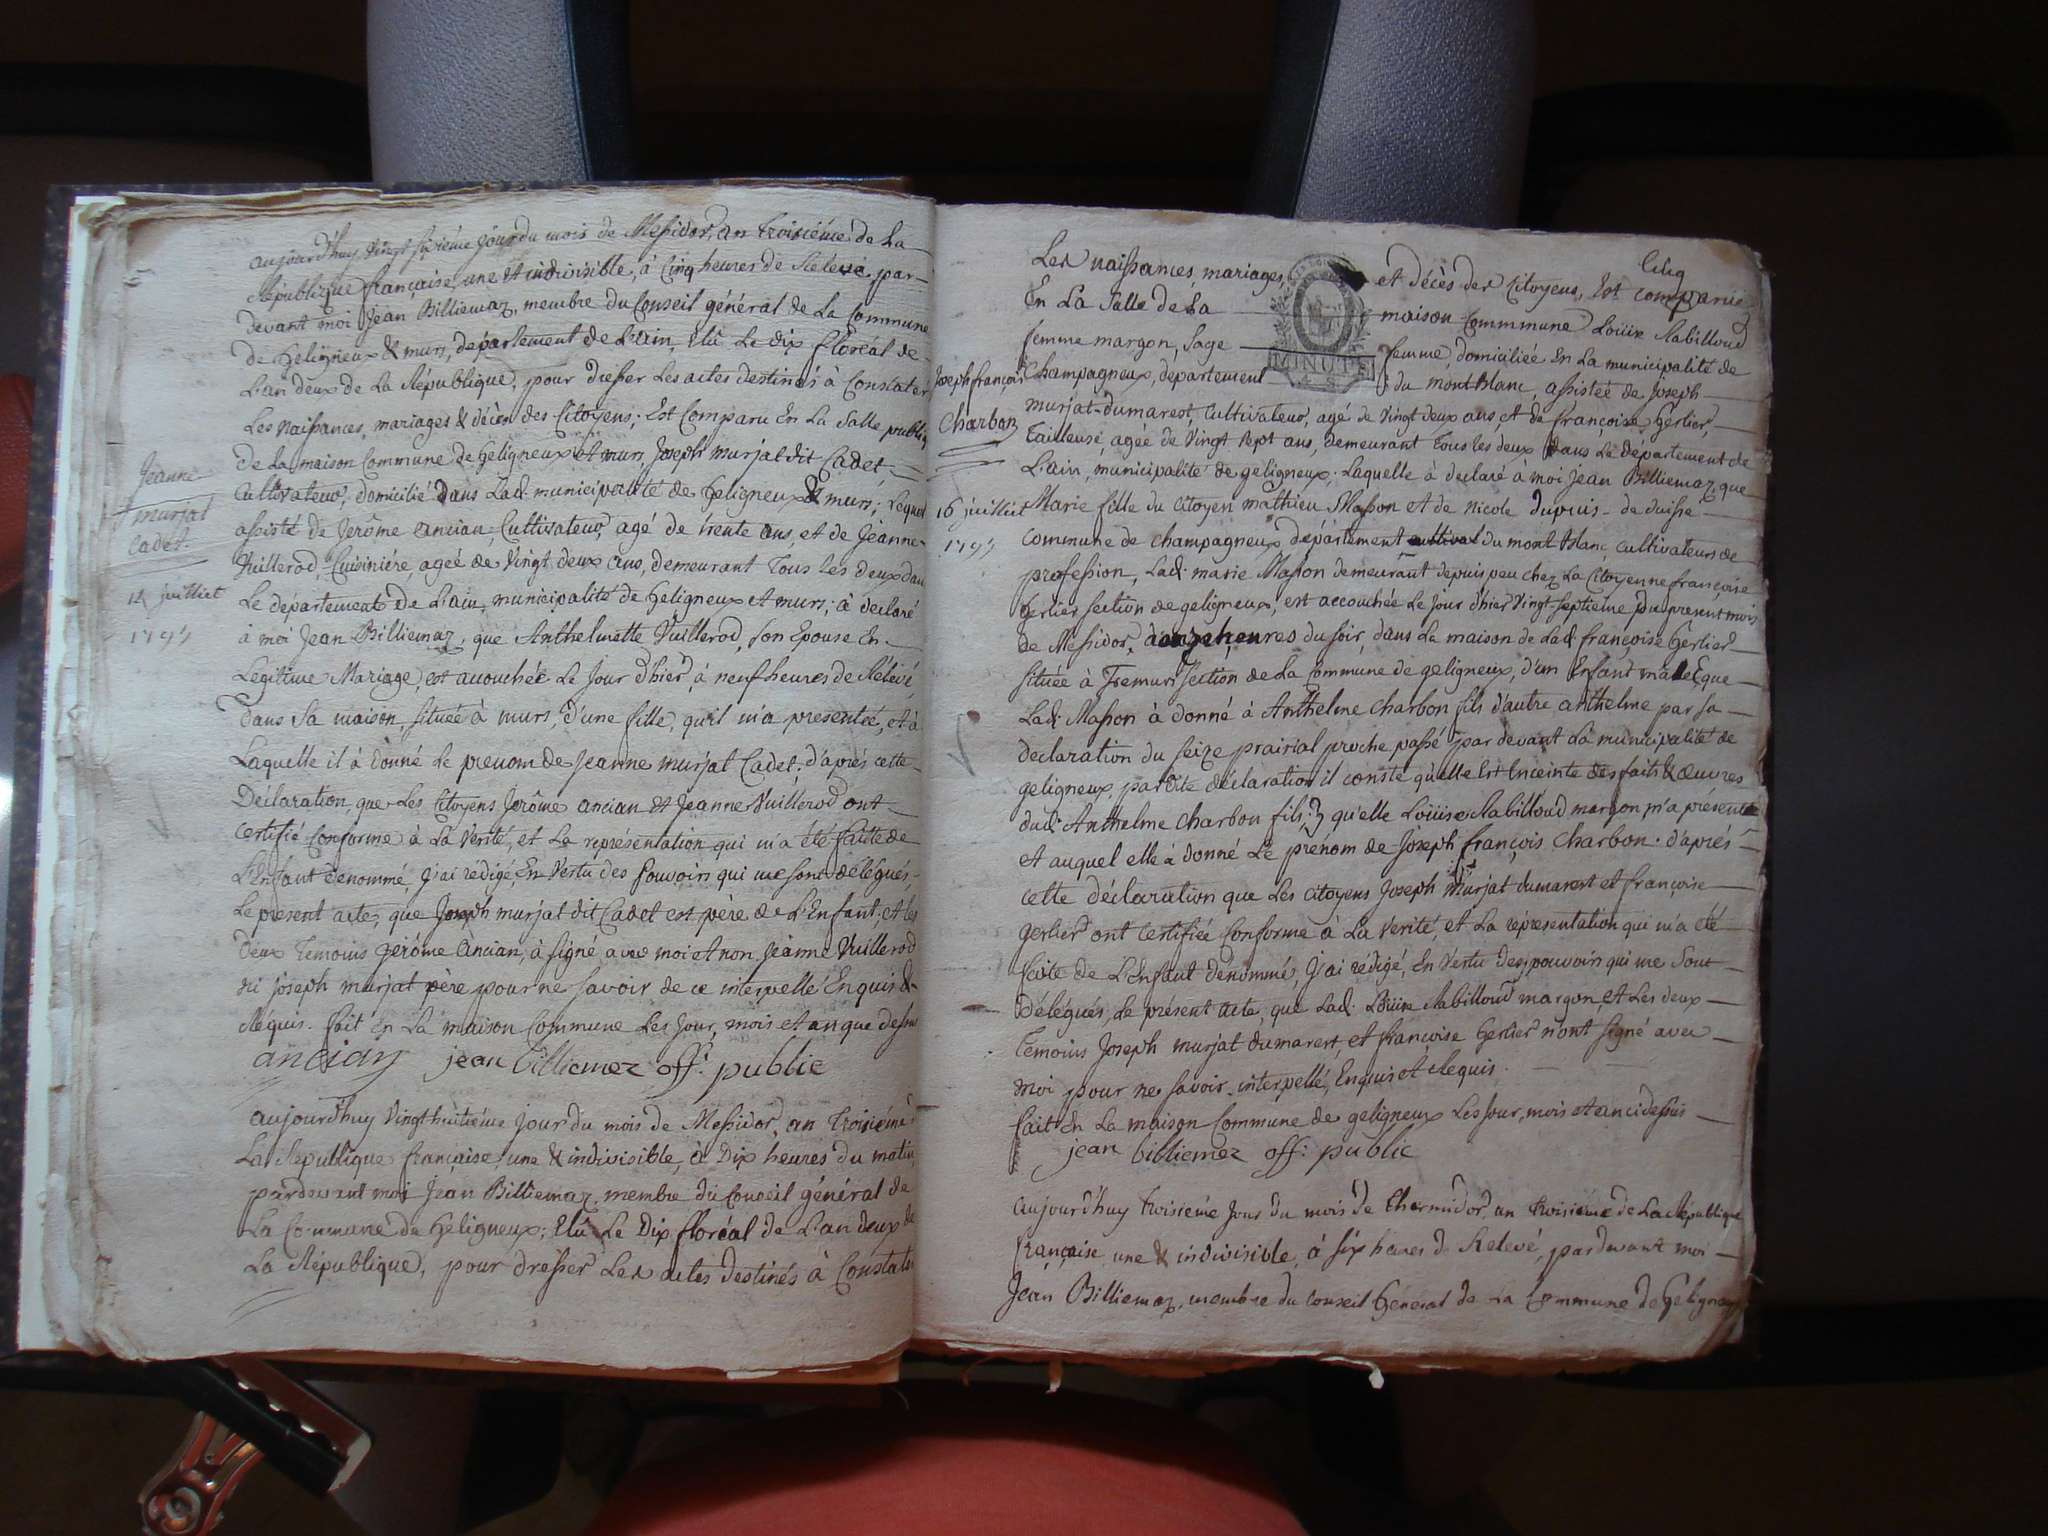 aujourd'huy Vingt sixiéme jour du mois de Messidor, an Troisiéme de La
République française, une et indivisible, à Cinq heures de Relevé par-
devant moi Jean Billiemaz, membre du Conseil général de La Commune
de Geligneux & murs, département de L'ain, Elû Le dix floréal de
L'an deux de La République, pour dresser Les actes destinés à Constater
Les Naissances, mariages & décès des Citoyens; Est Comparu En La Salle publiq
de La maison Commune de Geligneux et murs, Joseph murjat dit Cadet,
Cultivateur, domicilié dans Lad. municipalité de Geligneux & murs; Lequel
assisté de Jerôme ancian, Cultivateur, agé de trente ans, et de Jeanne
Vuillerod, Cuisiniére, agée de Vingt deux ans, demeurant Tous Les deux dans
Le département de L'ain, municipalité de Geligneux et murs; à déclaré
à moi Jean Billiemaz, que Anthelmette Vuillerod, son Epouse En
Légitime Mariage, est accouchée Le Jour d'hier, à neuf heures de Rélévé,
dans Sa maison, située à murs, d'une fille, qu'il m'a presentée, et à
Laquelle il à donné Le prenom de Jeanne murjat Cadet; d'aprés cette
Déclaration, que Les Citoyens Jerôme ancian et Jeanne Vuillerod ont
certifié Conforme à La Verité, et La représentation qui m'a été faitte de
L'Enfant dénommé, J'ai rédigé, En Vertu des Pouvoirs qui me sont délégués,
Le présent acte, que Joseph murjat dit Cadet est père de L'Enfant, et les
deux Temoins gerôme ancian, à signé avec moi et non Jeanne Vuillerod
ni Joseph murjat père pour ne savoir de ce interpellé Enquis &
Réquis. fait En La maison Commune Les Jour, mois et an que dessus
ancian jean billiemez off. public
Jeanne
murjat
Cadet.
14 juilliet
1795
aujourd'huy Vingt huitiéme Jour du mois de Messidor, an Troisiéme
La République française, une & indivisible, à Dix heures du matin,
pardevant moi Jean Billiemaz, membre du Conseil général de
La Commune de Geligneux; Elû Le Dix floréal de L'an deux de
La République, pour dresser Les actes destinés à Constater
Cinq
Les naissances, mariages, et décès des Citoyens, Est comparüe
En La Salle de La maison Commmune Loüise Rabilloud
femme margon, Sage femme, domiciliée En La municipalité de
MINUTE
Champagneux, departement du mont Blanc, assistée de Joseph
murjat-dumarest, Cultivateur, agé de Vingt deux ans et de françoise Gerlier,
Tailleuse, agée de Vingt sept ans, demeurant Tous les deux dans Le département de
L'ain, municipalité de geligneux; Laquelle à declaré à moi Jean Billiemaz, que
Marie fille du Citoyen mathieu Masson et de Nicole dupuis de
Commune de champagneux département du mont blanc, cultivateurs de
profession, Lad. marie Masson demeurant depuis peu chez La Citoyenne françoise
Gerlier section de geligneux, est accouchée Le Jour d'hier Vingt-septiéme du présent mois
de Messidor, à onze heures du soir, dans La maison de Lad. françoise Gerlier
située à Fremurs section de La Commune de geligneux, d'un Enfant male que
Lad. Masson à donné à Anthelme charbon fils d'autre anthelme par sa
déclaration du seize prairial proche passé par devant La municipalité de
geligneux, par dite déclaration il conste qu'elle Est Enceinte des faits & œuvres
dud. Anthelme charbon fils, & qu'elle Loüise Rabilloud margon m'a présenté
et auquel elle à donné Le prénom de Joseph françois Charbon. d'aprés
cette déclaration que Les citoyens Joseph murjat dumarest et françoise
gerlier ont Certifiée Conforme à La Verité, et La représentation qui m'a été
faite de L'Enfant dénommé, J'ai rédigé, En Vertu des pouvoirs qui me sont
délégués, Le présent acte, que Lad. Loüise Rabilloud margon, et Les deux
Temoins Joseph murjat dumarest, et françoise Gerlier n'ont signé avec
moi pour ne savoir, interpellé, Enquis et Requis.
fait En La maison Commune de geligneux Les Jour, mois et an ci dessus
jean billiemez off: public
Joseph françois
Charbon
16 juilliet
1795
aujourd'huy troisiéme Jour du mois de thermidor, an troisiéme de La République
française une & indivisible, à six heures de Relevé, pardevant moi
Jean Billiemaz, membre du Conseil Général de La Commune de Geligneux